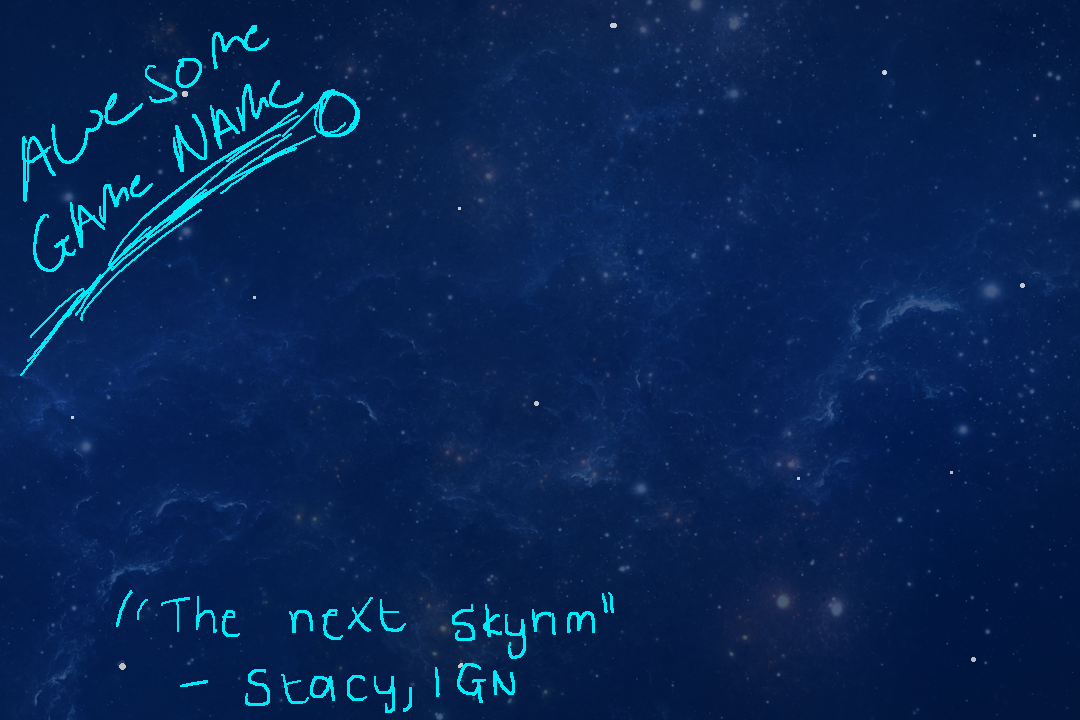 Awesome
Game Name
"The next skyrim"
- Stacy, IGN